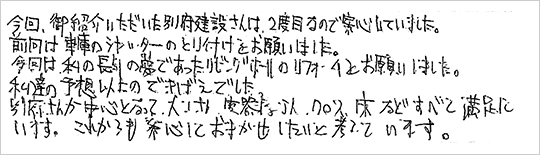 今回、御紹介いただいた別府建設さんは、2度目なので安心していました。
前回は車庫のシャッターのとり付けをお願いしました。
今回は私の長年の夢であったリビングホールのリフォームをお願いしました。
私達の予想以上のできばえでした。
別府さんが中心となって、大工さん、クロス、床などすべて満足して
います。これからも安心しておまかせしたいと考えています。